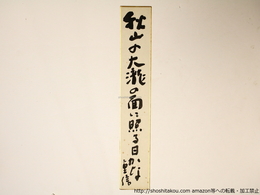 秋山の大瀧の面に照る日かな
http://shoshitakou.com amazon等への転載・加工禁止